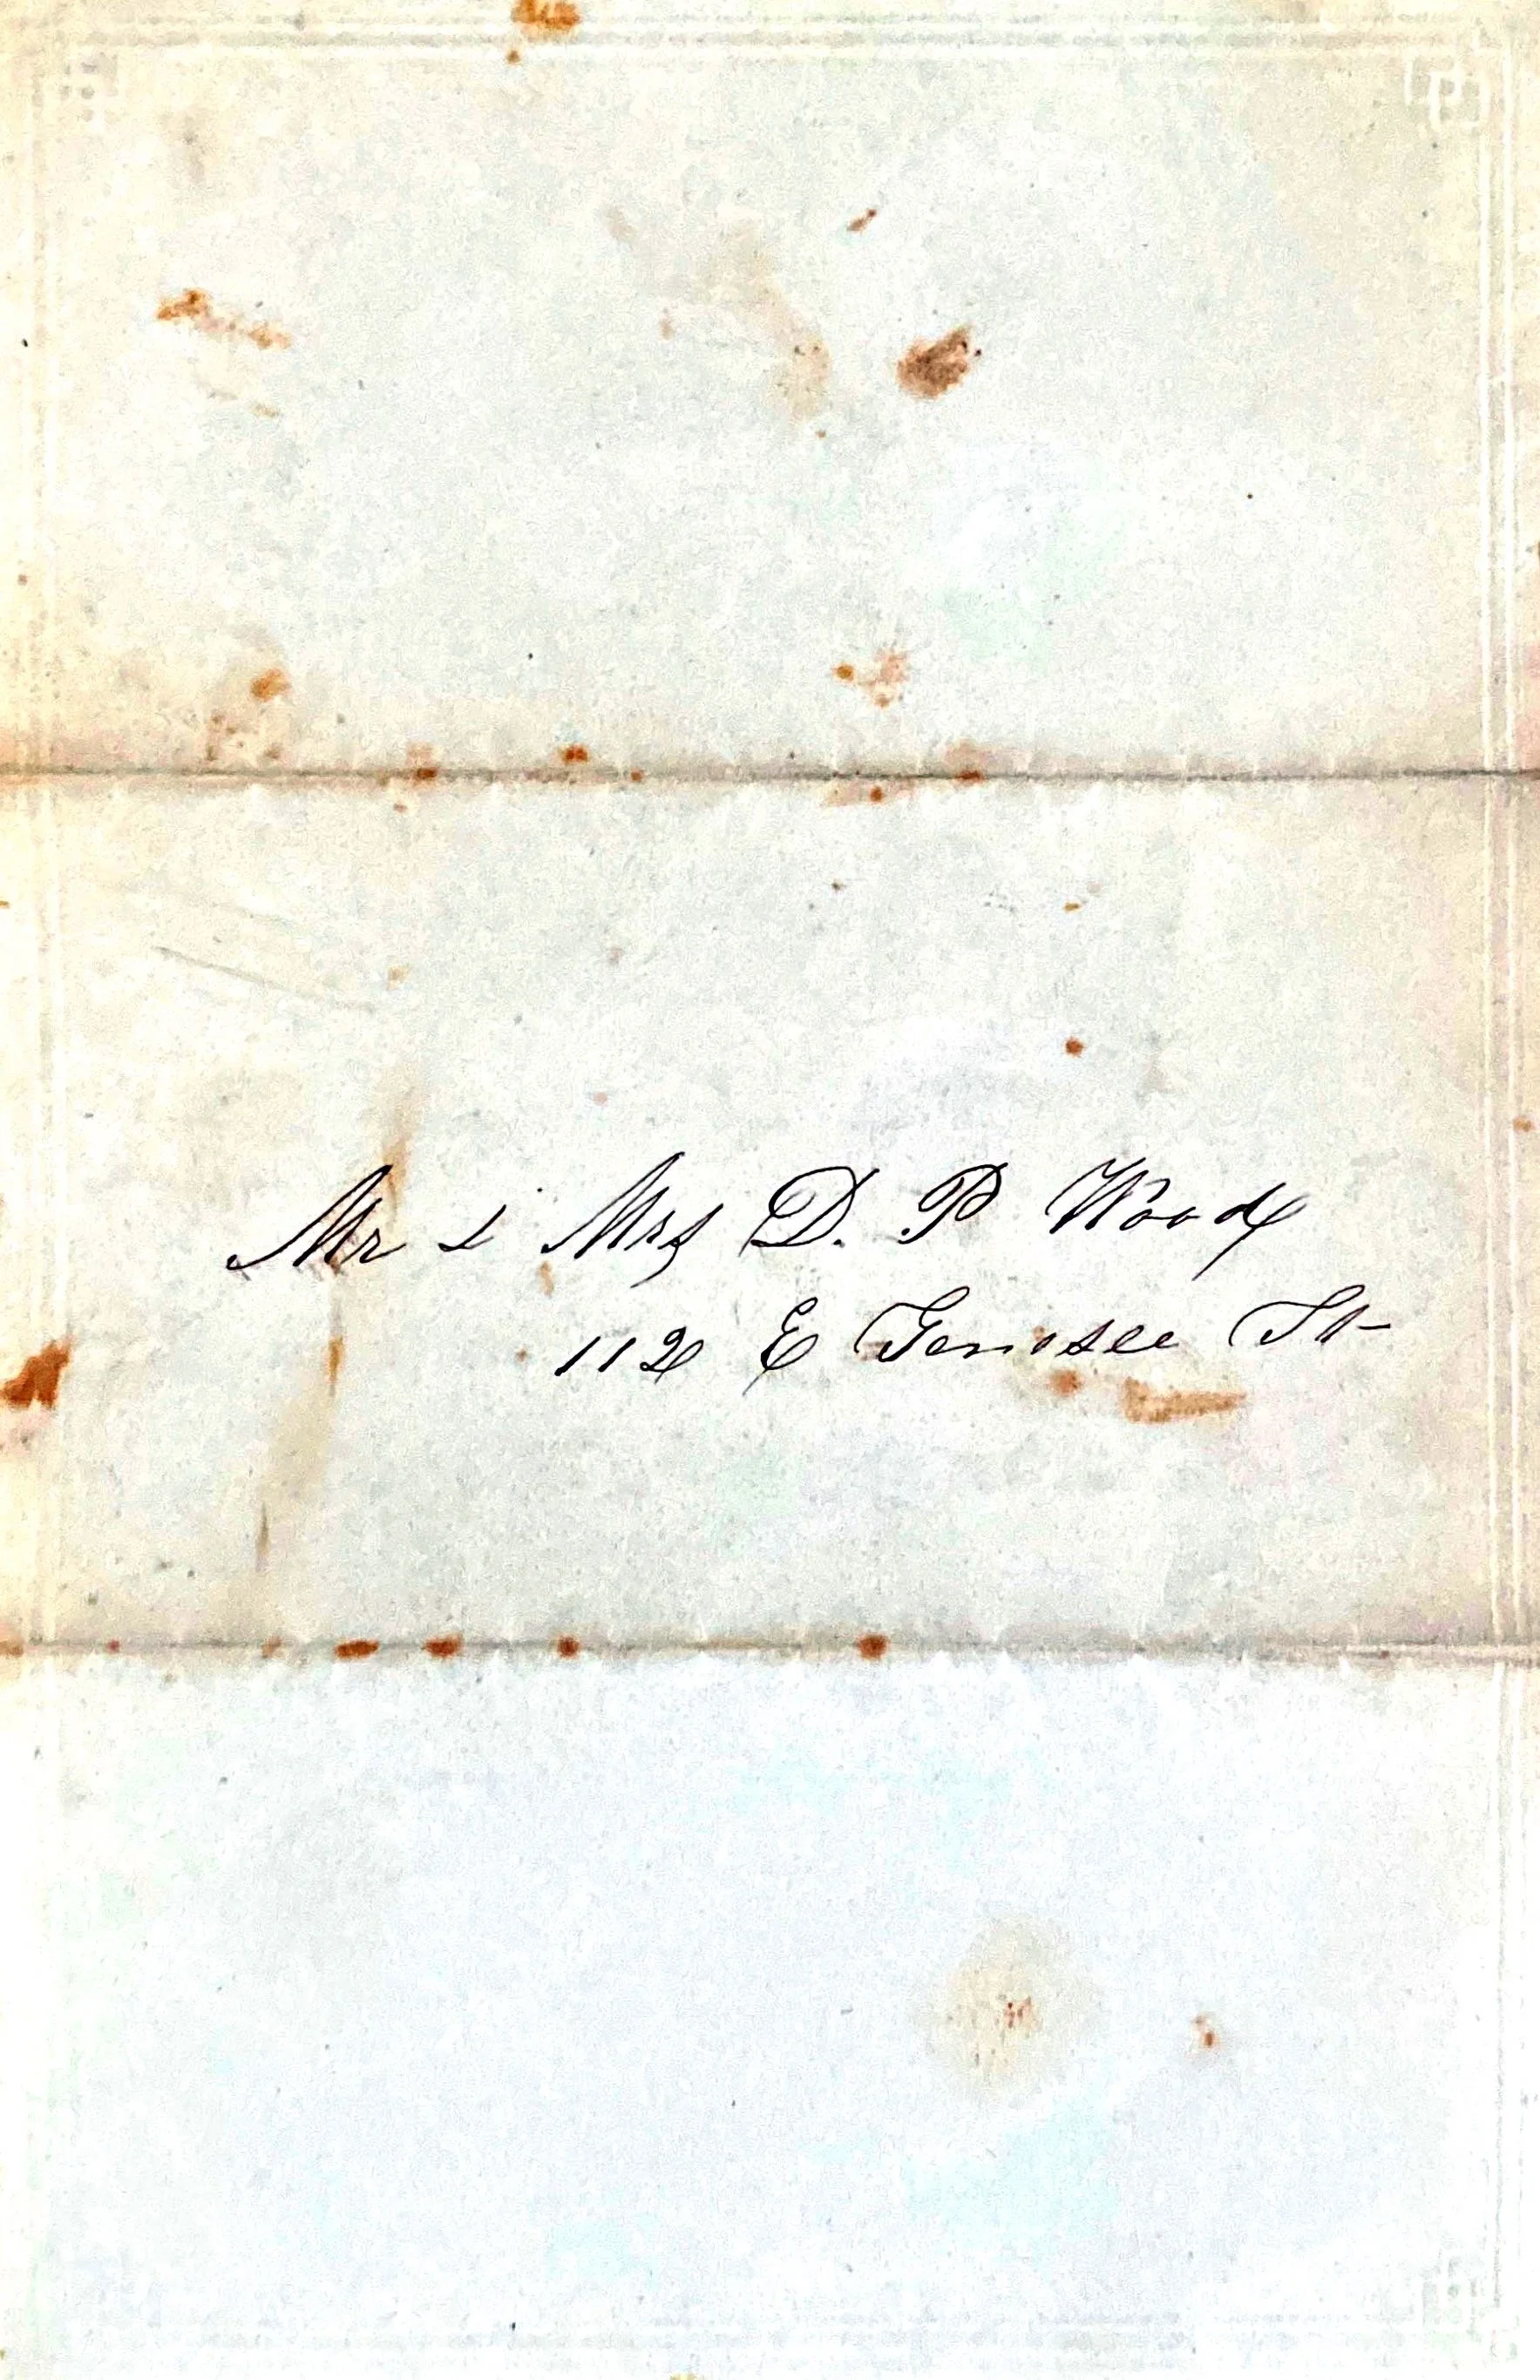 Mr & Mrs D. P Wood
112 E Genesee St